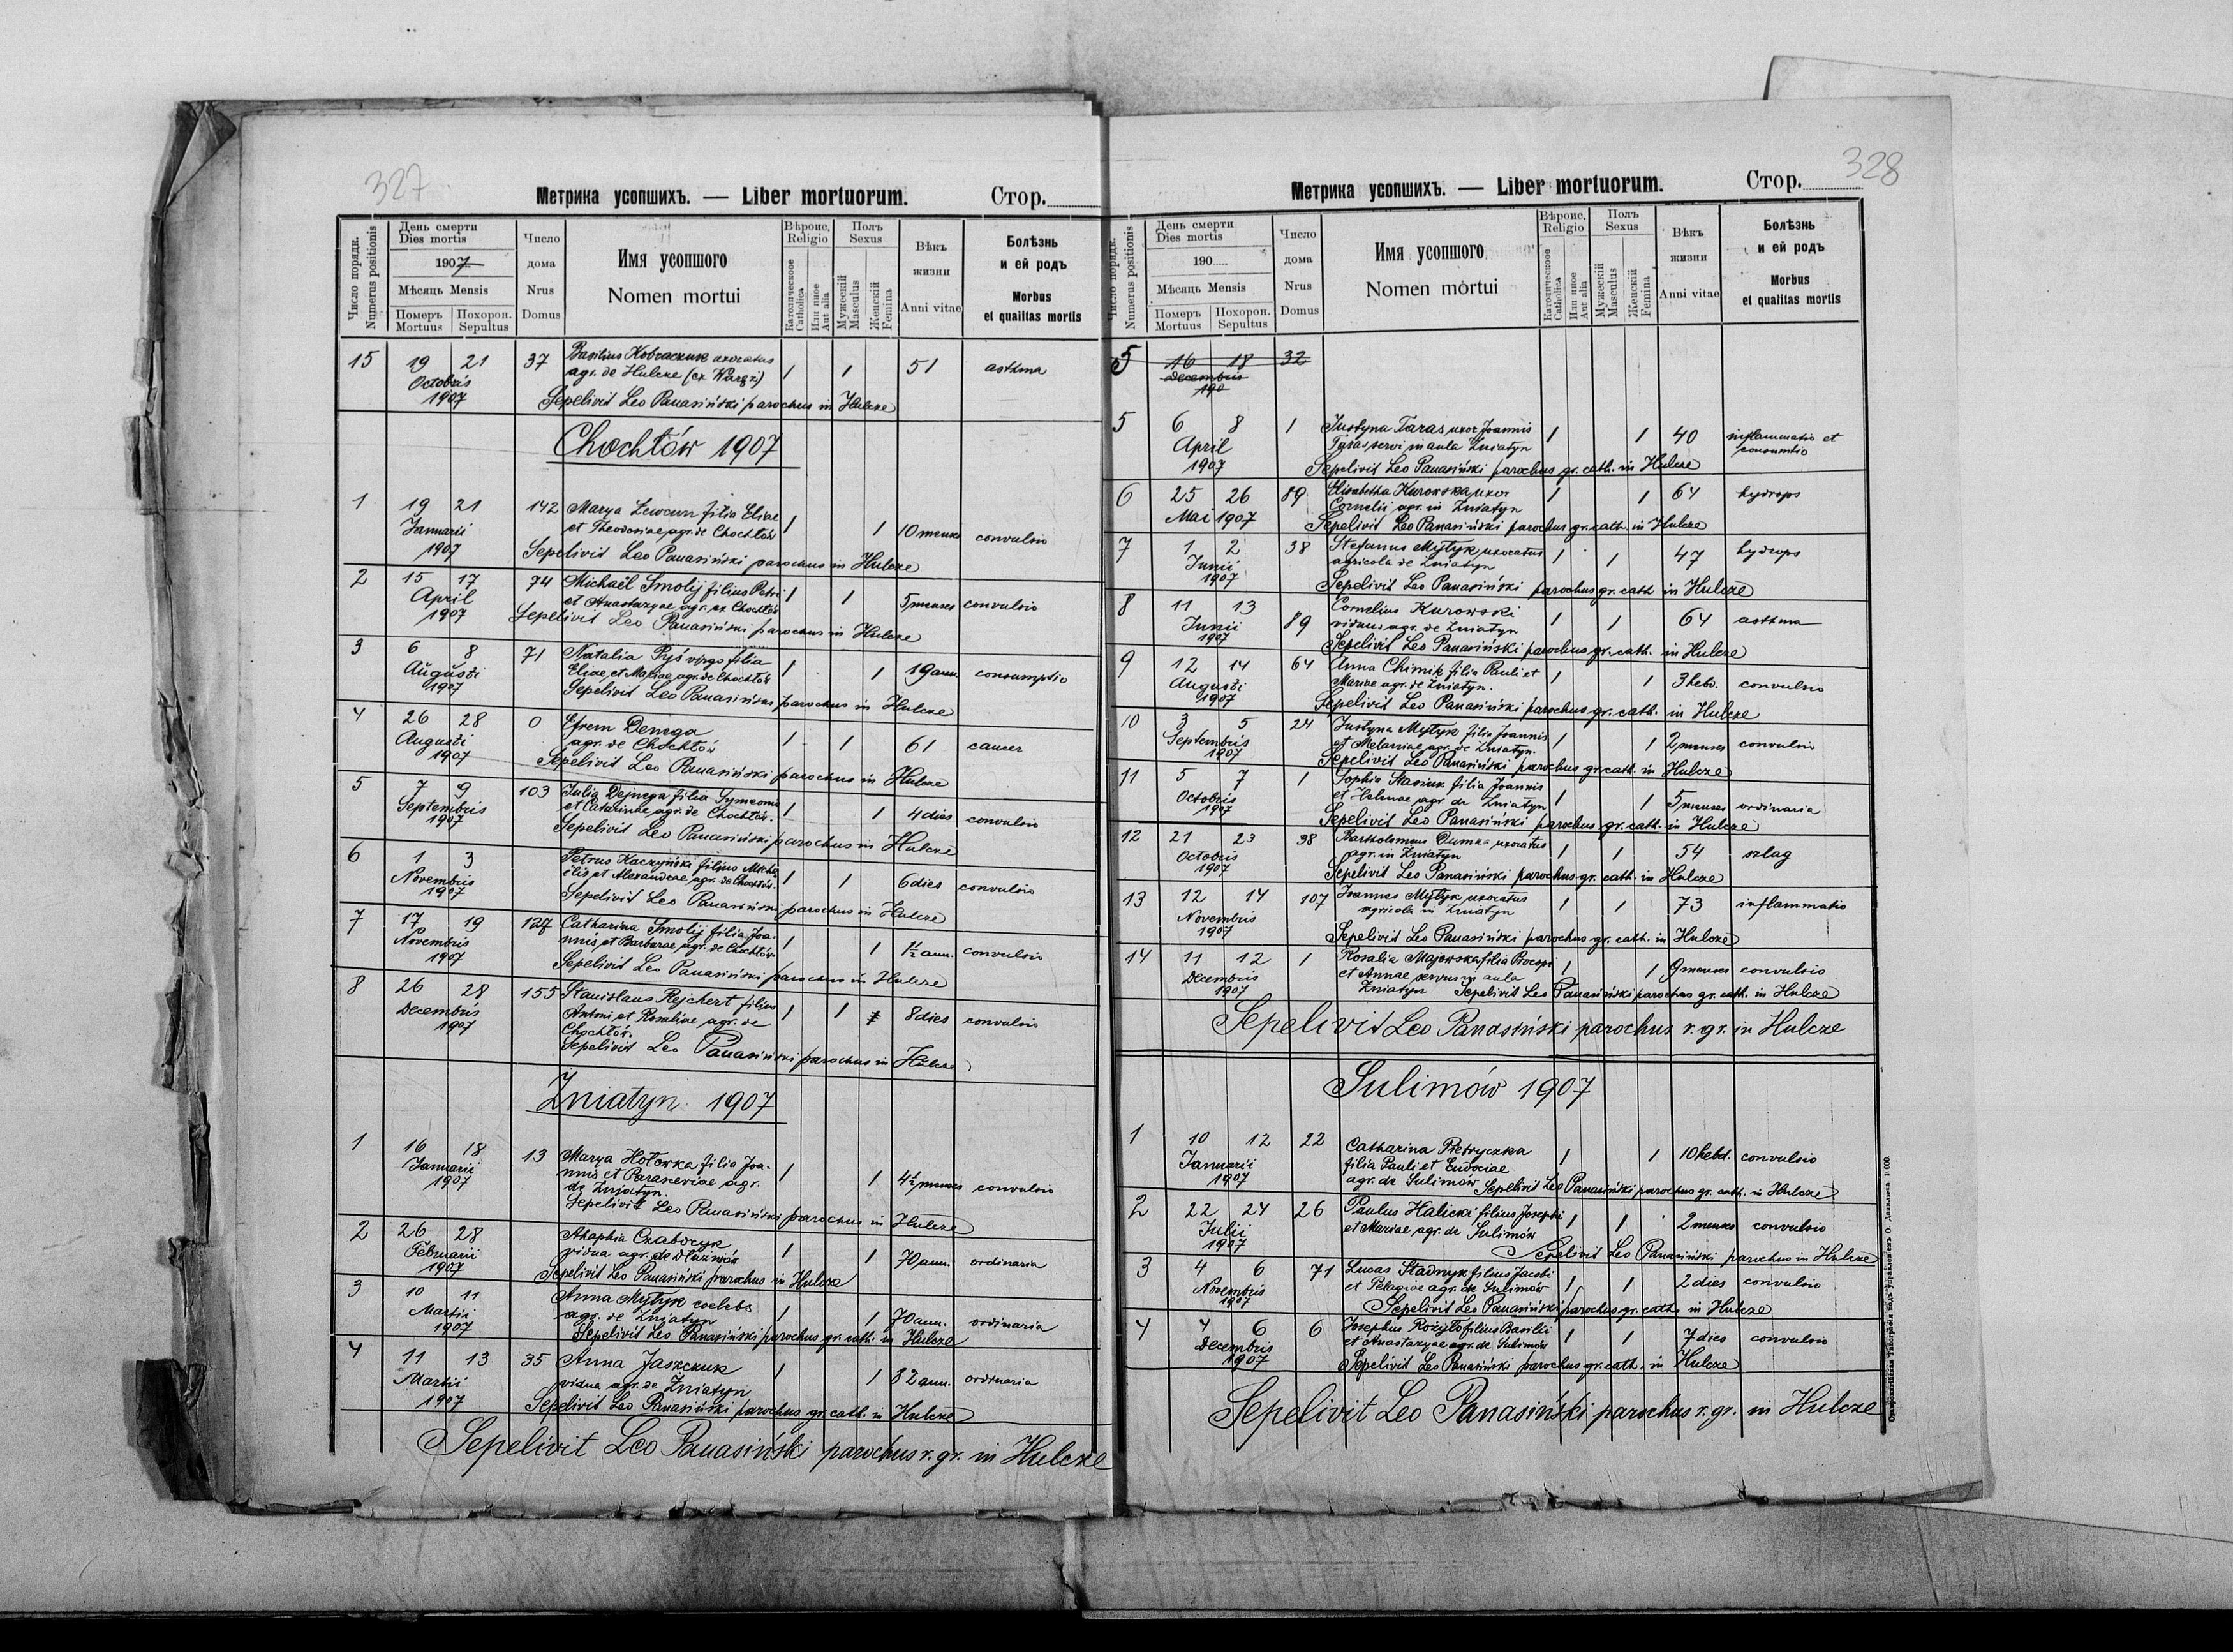 327
Метрика усопшихъ. — Liber mortuorum. Стор.
Число порядк.
Numerus positionis
День смерти
Dies mortis
1907
Мѣсяць Mensis
Померъ Mortuus
Похорон. Sepultus
Число дома
Nrus Domus
Имя усопшого
Nomen mortui
Вѣроис. Religio
Католическоое Catholica
Или иное Aut alia
Полъ Sexus
Мужескій Masculus
Женскій Femina
Вѣкъ жизни
Anni vitae
Болѣзнь и ей родъ
Morbus et qualitas mortis
15 19 21 37 Basilius Kobraczuk uxoratus
Octobris agr. de Hulcze (ex Waręż) 1 1 51 asthma
1907 Sepelivit Leo Panasiński parochus in Hulcze
Chochłów 1907
1 19 21 142 Marya Lewcun filia Eliae
Januarii et Theodosiae agr. de Chochłów 1 1 10 menses convulsio
1907 Sepelivit Leo Panasiński parochus in Hulcze
2 15 17 74 Michaël Smolij filius Petri
April et Anastazyae agr. ex Chochłów 1 1 5 menses convulsio
1907 Sepelivit Leo Panasiński parochus in Hulcze
3 6 8 71 Natalia Pyś virgo filia
Augusti Eliae et Mariae agr. de Chochłów 1 1 19 ann. consumptio
1907 Sepelivit Leo Panasiński parochus in Hulcze
4 26 28 0 Efrem Denega
Augusti agr. de Chochłów 1 1 61 cancer
1907 Sepelivit Leo Panasiński parochus in Hulcze
5 7 9 103 Julia Dejnega filia Symeonis
Septembris et Catarinae agr. de Chochłów. 1 1 4 dies convulsio
1907 Sepelivit Leo Panasiński parochus in Hulcze
6 1 3 Petrus Kaczyński filius Micha-
Novembris ëlis et Alexandrae agr. de Chochłów. 1 1 6 dies convulsio
1907 Sepelivit Leo Panasiński parochus in Hulcze
7 17 19 127 Catharina Smolij filia Joa-
Novembris nnis et Barbarae agr. de Chochłów 1 1 1½ ann. convulsio
1907 Sepelivit Leo Panasiński parochus in Hulcze
8 26 28 155 Stanislaus Rejchert filius
Decembris Antoni et Rosaliae agr. de 1 1 8 dies convulsio
1907 Chochłów.
Sepelivit Leo Panasiński parochus in Hulcze
Żniatyn 1907
1 16 18 13 Marya Hołowka filia Joa-
Januarii nnis et Parasceviae agr. 1 1 4½ menses convulsio
1907 de Żniatyn.
Sepelivit Leo Panasiński parochus in Hulcze
2 26 28
Februarii vidua agr. de Dłużniów 1 1 70 ann. ordinaria
1907 Sepelivit Leo Panasiński parochus in Hulcze
3 10 11 Anna Mytyk coelebs
Martii agr. de Żniatyn 1 1 70 ann. ordinaria
1907 Sepelivit Leo Panasiński parochus gr. cath. in Hulcze
4 11 13 35 Anna Jaszczuk
Martii vidua agr. de Żniatyn 1 1 82 ann. ordinaria
1907 Sepelivit Leo Panasiński parochus gr. cath. in Hulcze
Sepelivit Leo Panasiński parochus r. gr. in Hulcze
328
Метрика усопшихъ. — Liber mortuorum. Стор.
Число порядк.
Numerus positionis
День смерти
Dies mortis
190
Мѣсяць Mensis
Померъ Mortuus
Похорон. Sepultus
Число дома
Nrus Domus
Имя усопшого
Nomen mortui
Вѣроис. Religio
Католическоое Catholica
Или иное Aut alia
Полъ Sexus
Мужескій Masculus
Женскій Femina
Вѣкъ жизни
Anni vitae
Болѣзнь и ей родъ
Morbus et qualitas mortis
5 16 18 32
Decembris
190
5 6 8 1 Justyna Taras uxor Joannis
April Taras servi in aula Żniatyn 1 1 40 inflammatio et consumtio
1907 Sepelivit Leo Panasiński parochus gr. cath. in Hulcze
6 25 26 89 Elisabetha Kurowska uxor 1 1 64 hydrops
Mai 1907 Cornelii agr. in Żniatyn
Sepelivit Leo Panasiński parochus gr. cath. in Hulcze
7 1 2 38 Stefanus Mytyk uxoratus 1 1 47 hydrops
Junii agricola de Żniatyn
1907 Sepelivit Leo Panasiński parochus gr. cath. in Hulcze
8 11 13 Cornelius Kurowski
Junii 89 viduus agr. de Żniatyn 1 1 64 asthma
1907 Sepelivit Leo Panasiński parochus gr. cath. in Hulcze
9 12 14 64 Anna Chimik filia Pauli et
Augusti Mariae agr. de Żniatyn. 1 1 3 hebd. convulsio
1907 Sepelivit Leo Panasiński parochus gr. cath. in Hulcze
10 3 5 24 Justyna Mytyk filia Joannis
Septembris et Melaniae agr. de Żniatyn. 1 1 2 menses convulsio
1907 Sepelivit Leo Panasiński parochus gr. cath. in Hulcze
11 5 7 1 Sophia Stasiuk filia Joannis
Octobris et Helenae agr. de Żniatyn 1 1 5 menses ordinaria
1907 Sepelivit Leo Panasiński parochus gr. cath. in Hulcze
12 21 23 38 Bartholomeus Dumka uxoratus
Octobris agr. in Żniatyn 1 1 54 szlag
1907 Sepelivit Leo Panasiński parochus gr. cath. in Hulcze
13 12 14 107 Joannes Mytyk uxoratus
Novembris agricola in Żniatyn 1 1 73 inflammatio
1907 Sepelivit Leo Panasiński parochus gr. cath. in Hulcze
14 11 12 1 Rosalia Majewska filia Procopi
Decembris et Annae servus in aula 1 1 9 menses convulsio
1907 Żniatyn Sepelivit Leo Panasiński parochus gr. cath. in Hulcze
Sepelivit Leo Panasiński parochus r. gr. in Hulcze
Sulimów 1907
1 10 12 22 Catharina Pietryczka
Januarii filia Pauli et Eudociae 1 1 10 hebd. convulsio
1907 agr. de Sulimów Sepelivit Leo Panasiński parochus gr. cath. in Hulcze
2 22 24 26 Paulus Halicki filius Josephi
Julii et Mariae agr. de Sulimów 1 1 2 menses convulsio
1907 Sepelivit Leo Panasiński parochus in Hulcze
3 4 6 71 Lucas Stadnyk filius Jacobi
Novembris et Pelagiae agr. de Sulimów 1 1 2 dies convulsio
1907 Sepelivit Leo Panasiński parochus gr. cath. in Hulcze
4 4 6 6 Josephus Rożyło filius Basilii
Decembris et Anastazyae agr. de Sulimów 1 1 7 dies convulsio
1907 Sepelivit Leo Panasiński parochus gr. cath. in Hulcze
Sepelivit Leo Panasiński parochus r. gr. in Hulcze